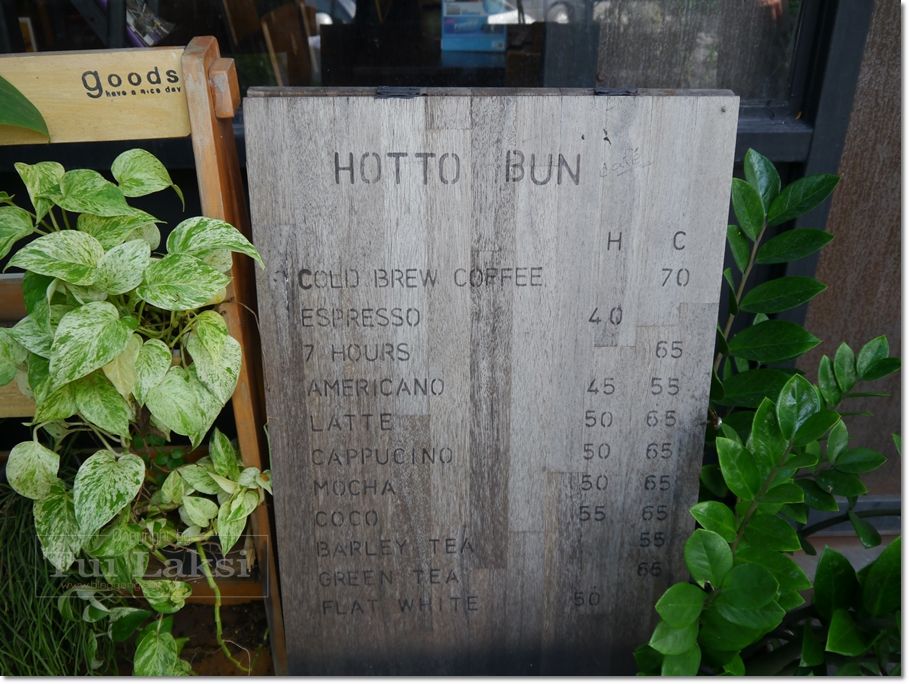 goods
have a nice day
HOTTO BUN
H C
COLD BREW COFFEE 70
ESPRESSO 40
7 HOURS 65
AMERICANO 45 55
LATTE 50 65
CAPPUCINO 50 65
MOCHA 50 65
COCO 55 65
BARLEY TEA 55
GREEN TEA 65
FLAT WHITE 50
Copyright by
Tui Laksi